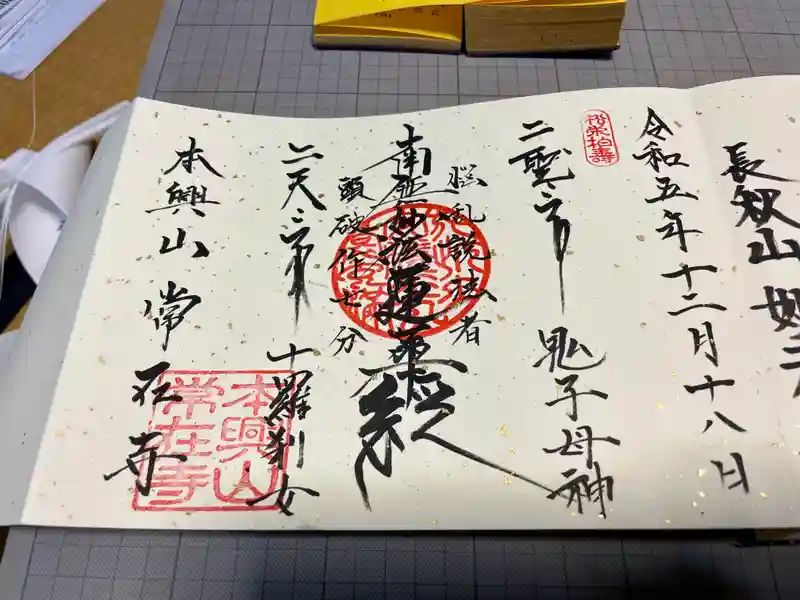 長秋山
令和五年十二月十八日
二聖二帝
鬼子母神
悩乱説法者
南無妙法蓮華経
頭破作七分
二天三帝
十羅刹女
本興山
常在寺
本興山
常在寺